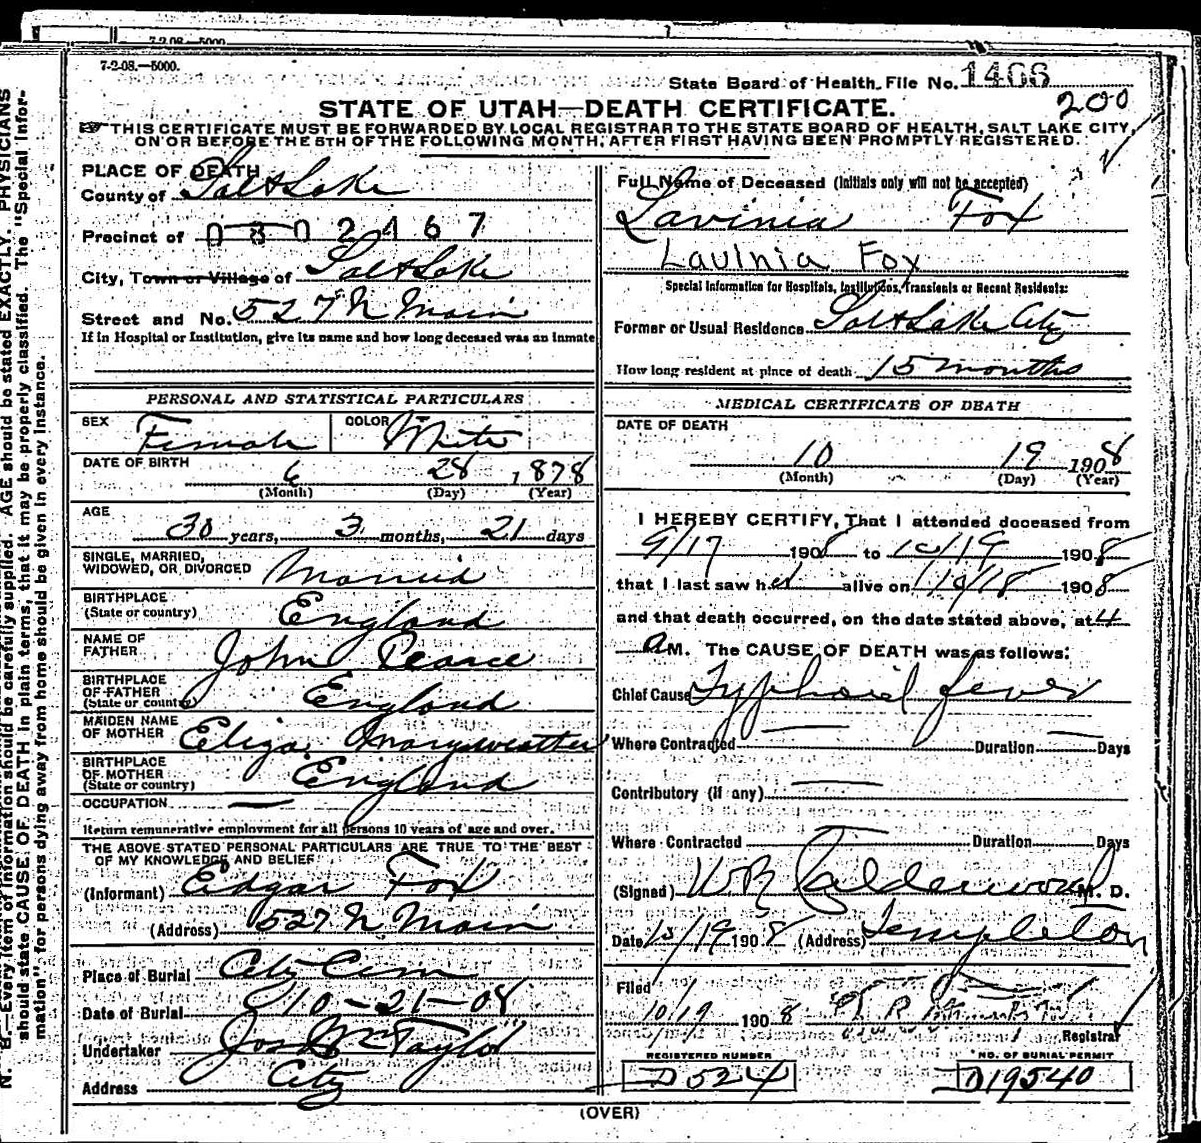 7-2-08.—5000.
7-2-08.—5000.
State Board of Health File No. 1466
200
STATE OF UTAH—DEATH CERTIFICATE.
THIS CERTIFICATE MUST BE FORWARDED BY LOCAL REGISTRAR TO THE STATE BOARD OF HEALTH, SALT LAKE CITY,
ON OR BEFORE THE 5TH OF THE FOLLOWING MONTH, AFTER FIRST HAVING BEEN PROMPTLY REGISTERED.
PLACE OF DEATH
County of Salt Lake
Precinct of 0802467
City, Town or Village of Salt Lake
Street and No. 527 N Main
If in Hospital or Institution, give its name and how long deceased was an inmate
Full Name of Deceased (Initials only will not be accepted)
Lavinia Fox
Lavinia Fox
Special Information for Hospitals, Institutions, Transients or Recent Residents:
Former or Usual Residence Salt Lake City
How long resident at place of death 15 months
PERSONAL AND STATISTICAL PARTICULARS
SEX Female COLOR White
DATE OF BIRTH 6 28 1878
(Month) (Day) (Year)
AGE
30 years, 3 months, 21 days
SINGLE, MARRIED,
WIDOWED, OR DIVORCED Married
BIRTHPLACE
(State or country) England
NAME OF
FATHER John Pearce
BIRTHPLACE
OF FATHER
(State or country) England
MAIDEN NAME
OF MOTHER Eliza Maryweather
BIRTHPLACE
OF MOTHER
(State or country) England
OCCUPATION —
Return remunerative employment for all persons 10 years of age and over.
THE ABOVE STATED PERSONAL PARTICULARS ARE TRUE TO THE BEST
OF MY KNOWLEDGE AND BELIEF
(Informant) Edgar Fox
(Address) 527 N Main
Place of Burial City Cem
Date of Burial 10-21-08
Undertaker Jos Wm Taylor
Address City
MEDICAL CERTIFICATE OF DEATH
DATE OF DEATH
10 19 1908
(Month) (Day) (Year)
I HEREBY CERTIFY, That I attended deceased from
9/17 1908 to 10/19 1908
that I last saw her alive on 10/18 1908
and that death occurred, on the date stated above, at 4
a M. The CAUSE OF DEATH was as follows:
Chief Cause Typhoid fever
Where Contracted — Duration — Days
Contributory (if any) —
Where Contracted — Duration Days
(Signed) W R Calderwood M. D.
Date 10/19 1908 (Address) Templeton
Filed
10/19 1908
Registrar
REGISTERED NUMBER
D524
NO. OF BURIAL PERMIT
D19540
(OVER)
N. B.—Every item of information should be carefully supplied. AGE should be stated EXACTLY. PHYSICIANS
should state CAUSE OF DEATH in plain terms, that it may be properly classified. The "Special Infor-
mation" for persons dying away from home should be given in every instance.